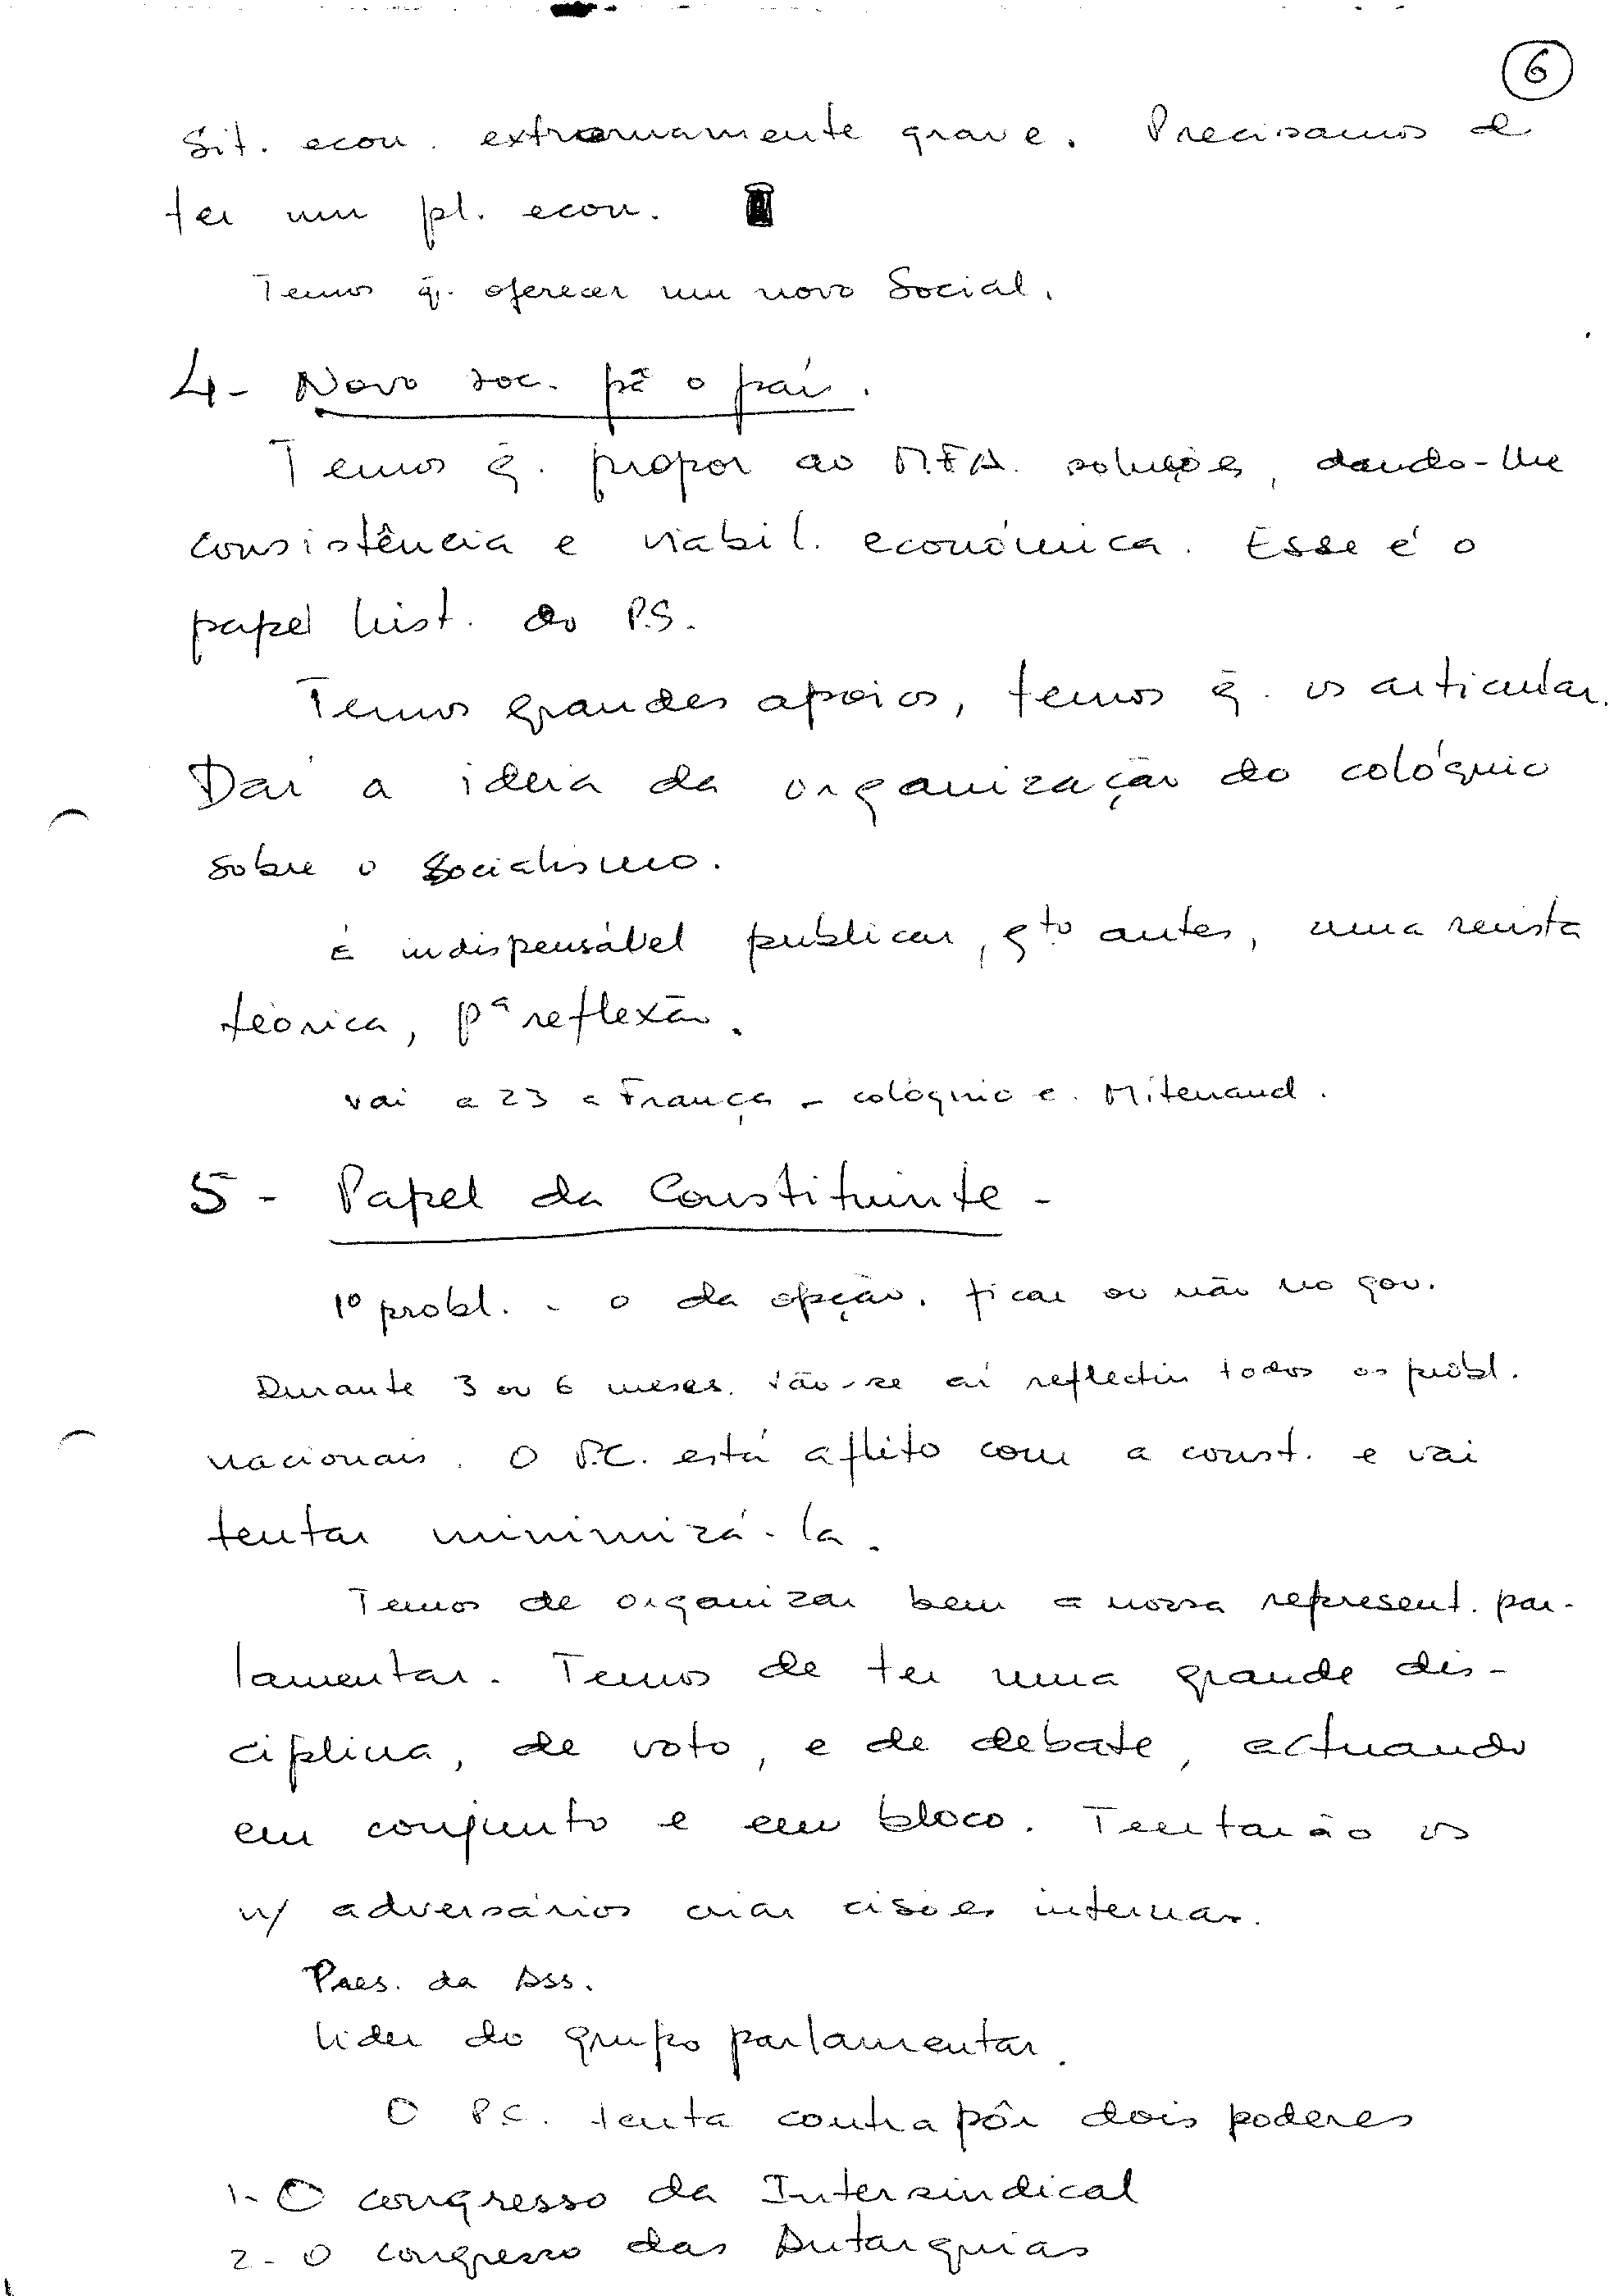 6
Sit. econ. extremamente grave. Precisamos de
ter um pl. econ.
Temos q. oferecer um novo Social.
4- Novo soc. pª o país.
Temos q. propor ao M.F.A. soluções, dando-lhe
consistência e viabil. económica. Esse é o
papel hist. do P.S.
Temos grandes apoios, temos q. os articular.
Dar a ideia da organização do colóquio
sobre o Socialismo.
É indispensável publicar, qto antes, uma revista
teórica, pª reflexão.
Vai a 23 a França - colóquio c. Miterrand.
5- Papel da Constituinte -
1º probl. - o da opção. ficar ou não no gov.
Durante 3 ou 6 meses. Vão-se aí reflectir todos os probl.
nacionais. O P.C. está aflito com a const. e vai
tentar minimizá-la.
Temos de organizar bem a nossa represent. par-
lamentar. Temos de ter uma grande dis-
ciplina, de voto, e de debate, actuando
em conjunto e em bloco. Tentarão os
n/ adversários criar cisões internas.
Pres. da Ass.
lider do grupo parlamentar.
O P.C. tenta contrapôr dois poderes
1- O congresso da Intersindical
2- O congresso das Autarquias